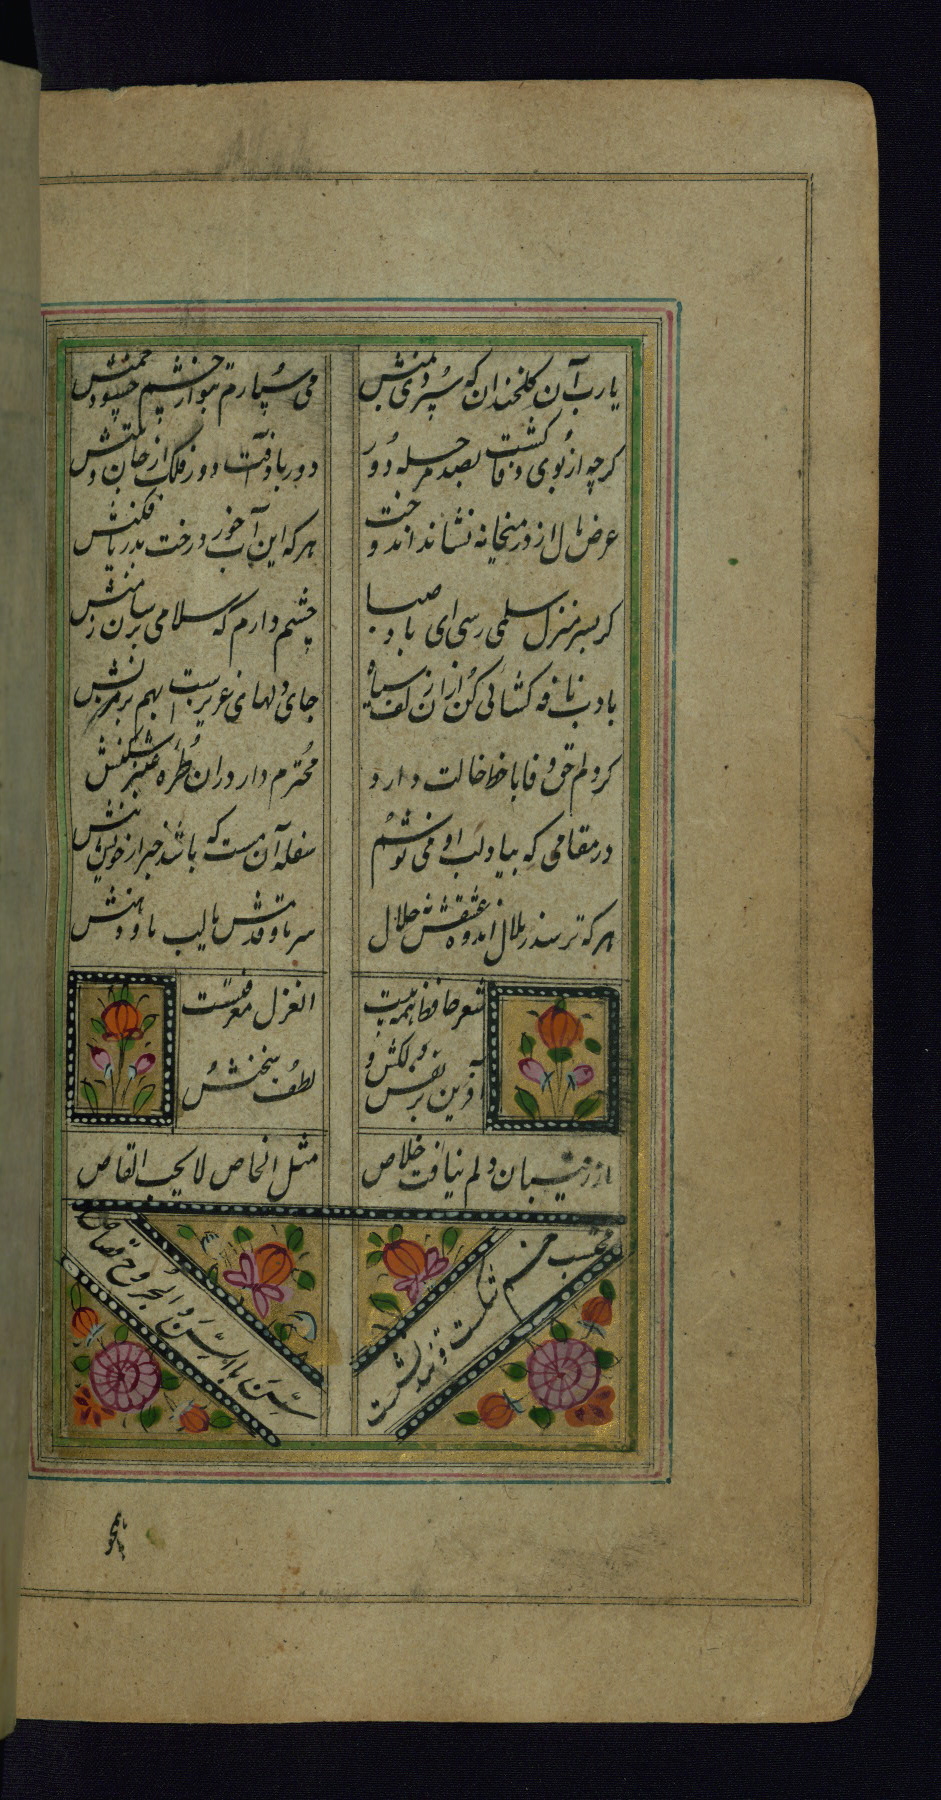 یارب آن گلخندان که سپردی بمنش
می سپارم بتو از چشم حسود چمنش
گرچه از کوی وفا گشت بصد مرحله دور
دور باد آفت دور فلک از جان و تنش
هرکه این آب خورد رخت بدریا فکنش
گر بسر منزل سلمی رسی ای باد صبا
چشم دارم که سلامی برسانی ز منش
بادب نافه کشائی کن از آن زلف سیاه
جای دلهای عزیزست بهم بر مزنش
کو دلم حق وفا با خط و خالت دارد
محترم دار در آن طره عنبر شکنش
در مقامی که بیاد لب او می نوشند
سفله آن مست که باشد خبر از خویشتنش
هرکه ترسد ز ملال انده عشقش نه حلال
سر ما و قدمش یا لب ما و دهنش
شعر حافظ همه بیت الغزل معرفتست
آفرین بر نفس دلکش و لطف سخنش
از رقیبان دلم نیافت خلاص
مثل القاص لا یحب القاص
محتسب خم شکست و بنده سرش
سن بالسن والجروح قصاص